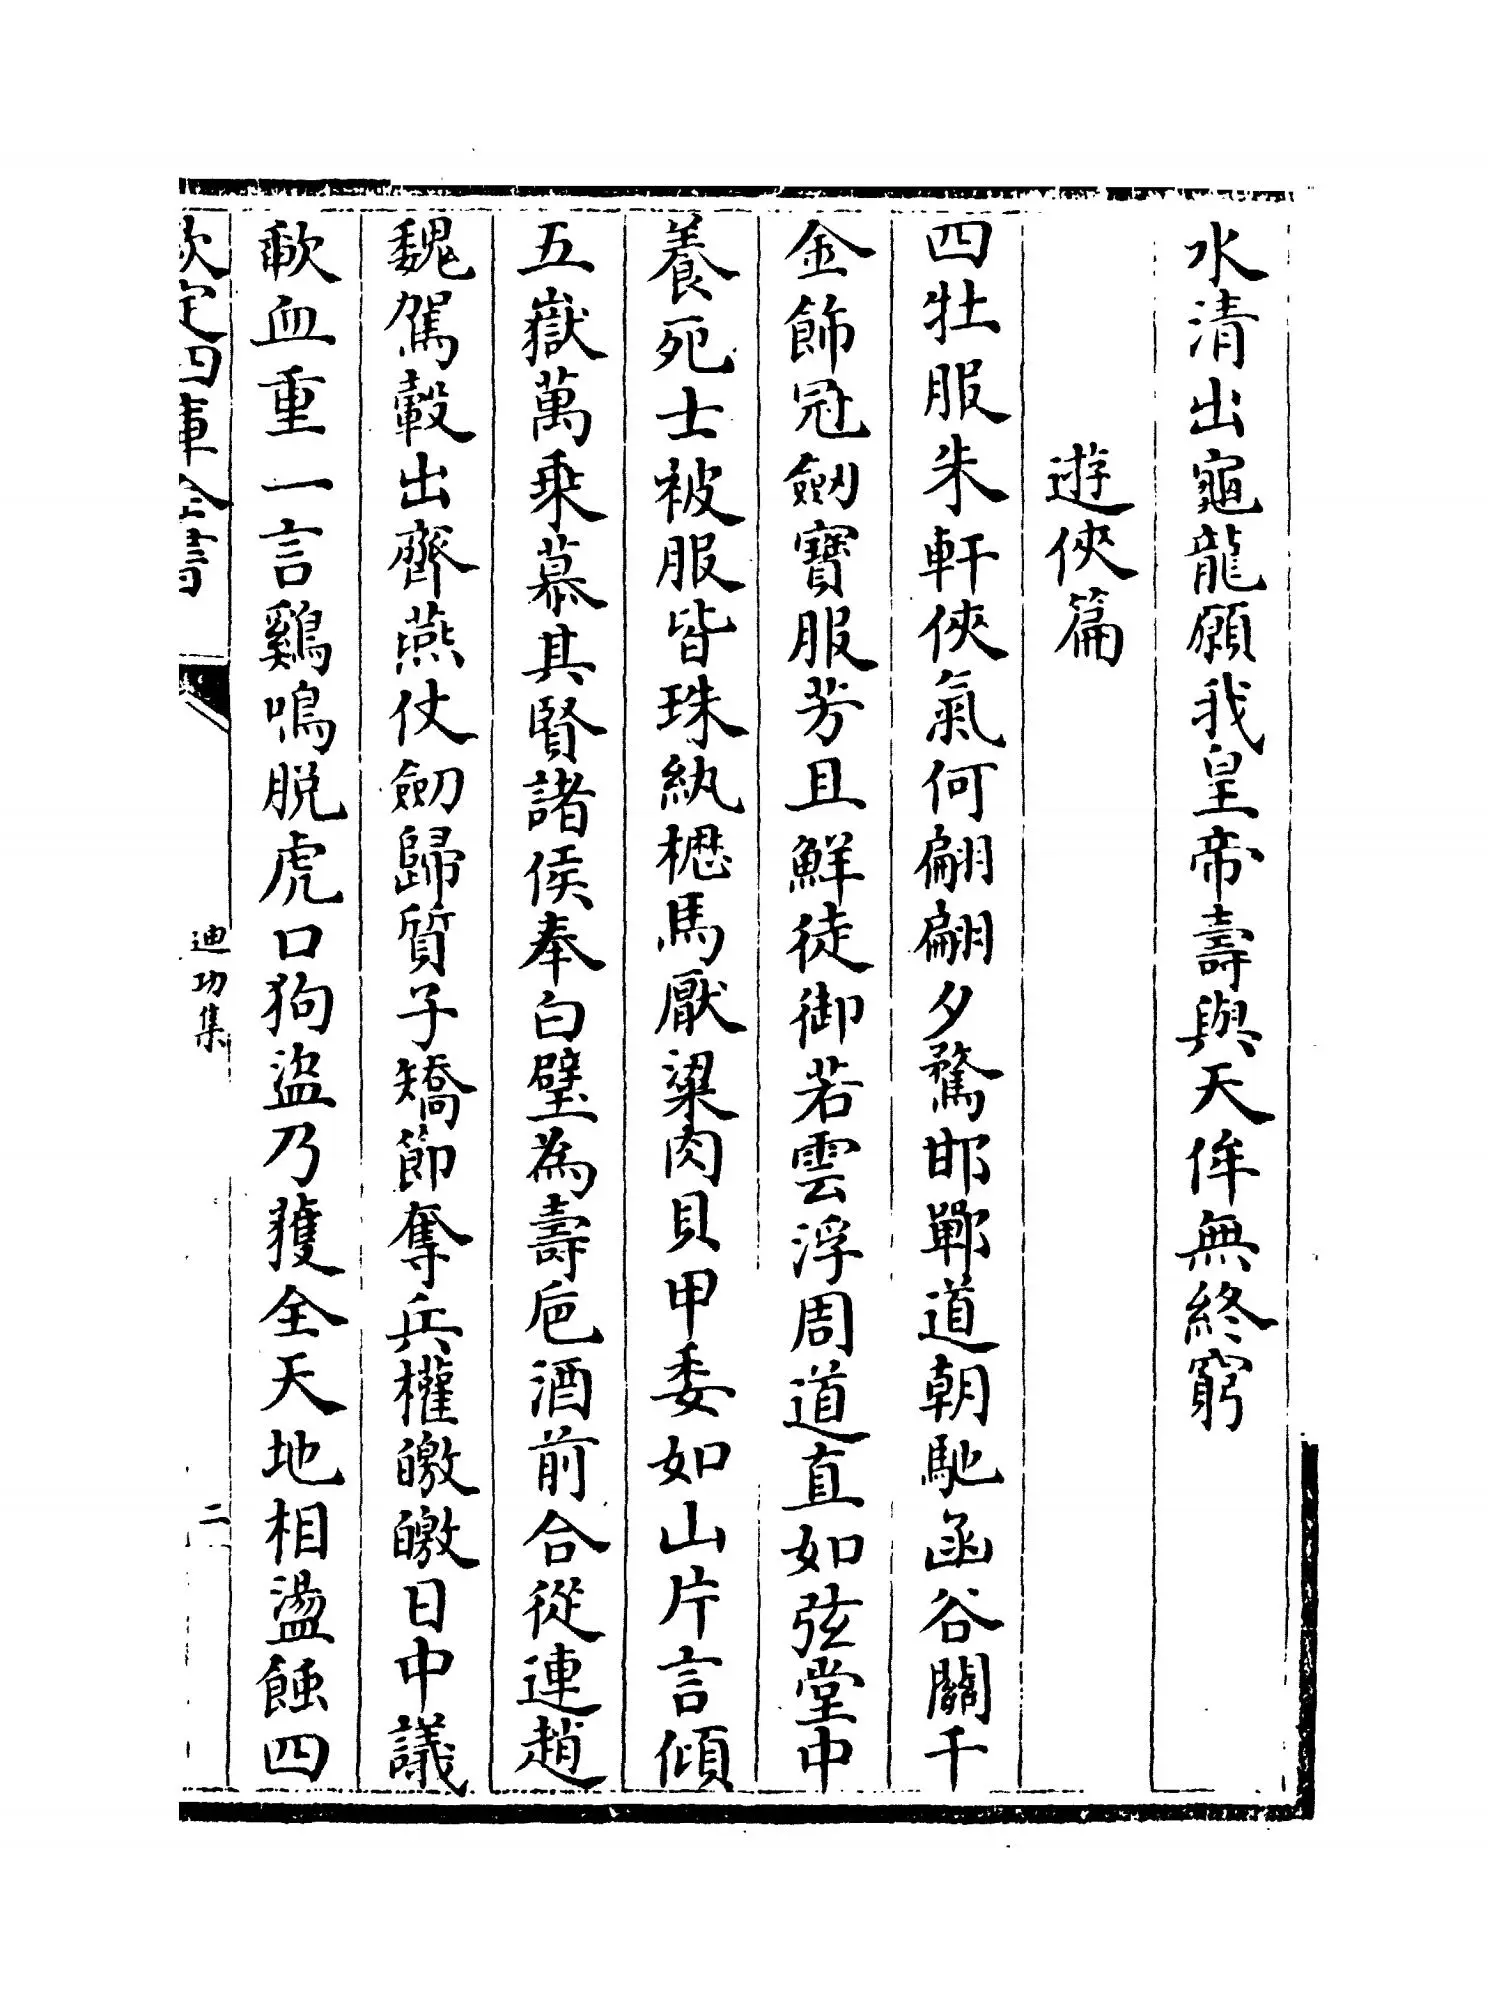 水清出龜龍願我皇帝壽與天侔無終窮
遊俠篇
四牡服朱軒俠氣何翩翩夕騖邯鄲道朝馳函谷關千
金飾冠劒寶服芳且鮮徒御若雲浮周道直如弦堂中
養死士被服皆珠紈櫪馬厭粱肉貝甲委如山片言傾
五嶽萬乘慕其賢諸侯奉白璧為壽巵酒前合從連趙
魏駕轂出齊燕仗劒歸質子矯節奪兵權皦皦日中議
歃血重一言鷄鳴脱虎口狗盜乃獲全天地相盪蝕四
欽定四庫全書
迪功集
二